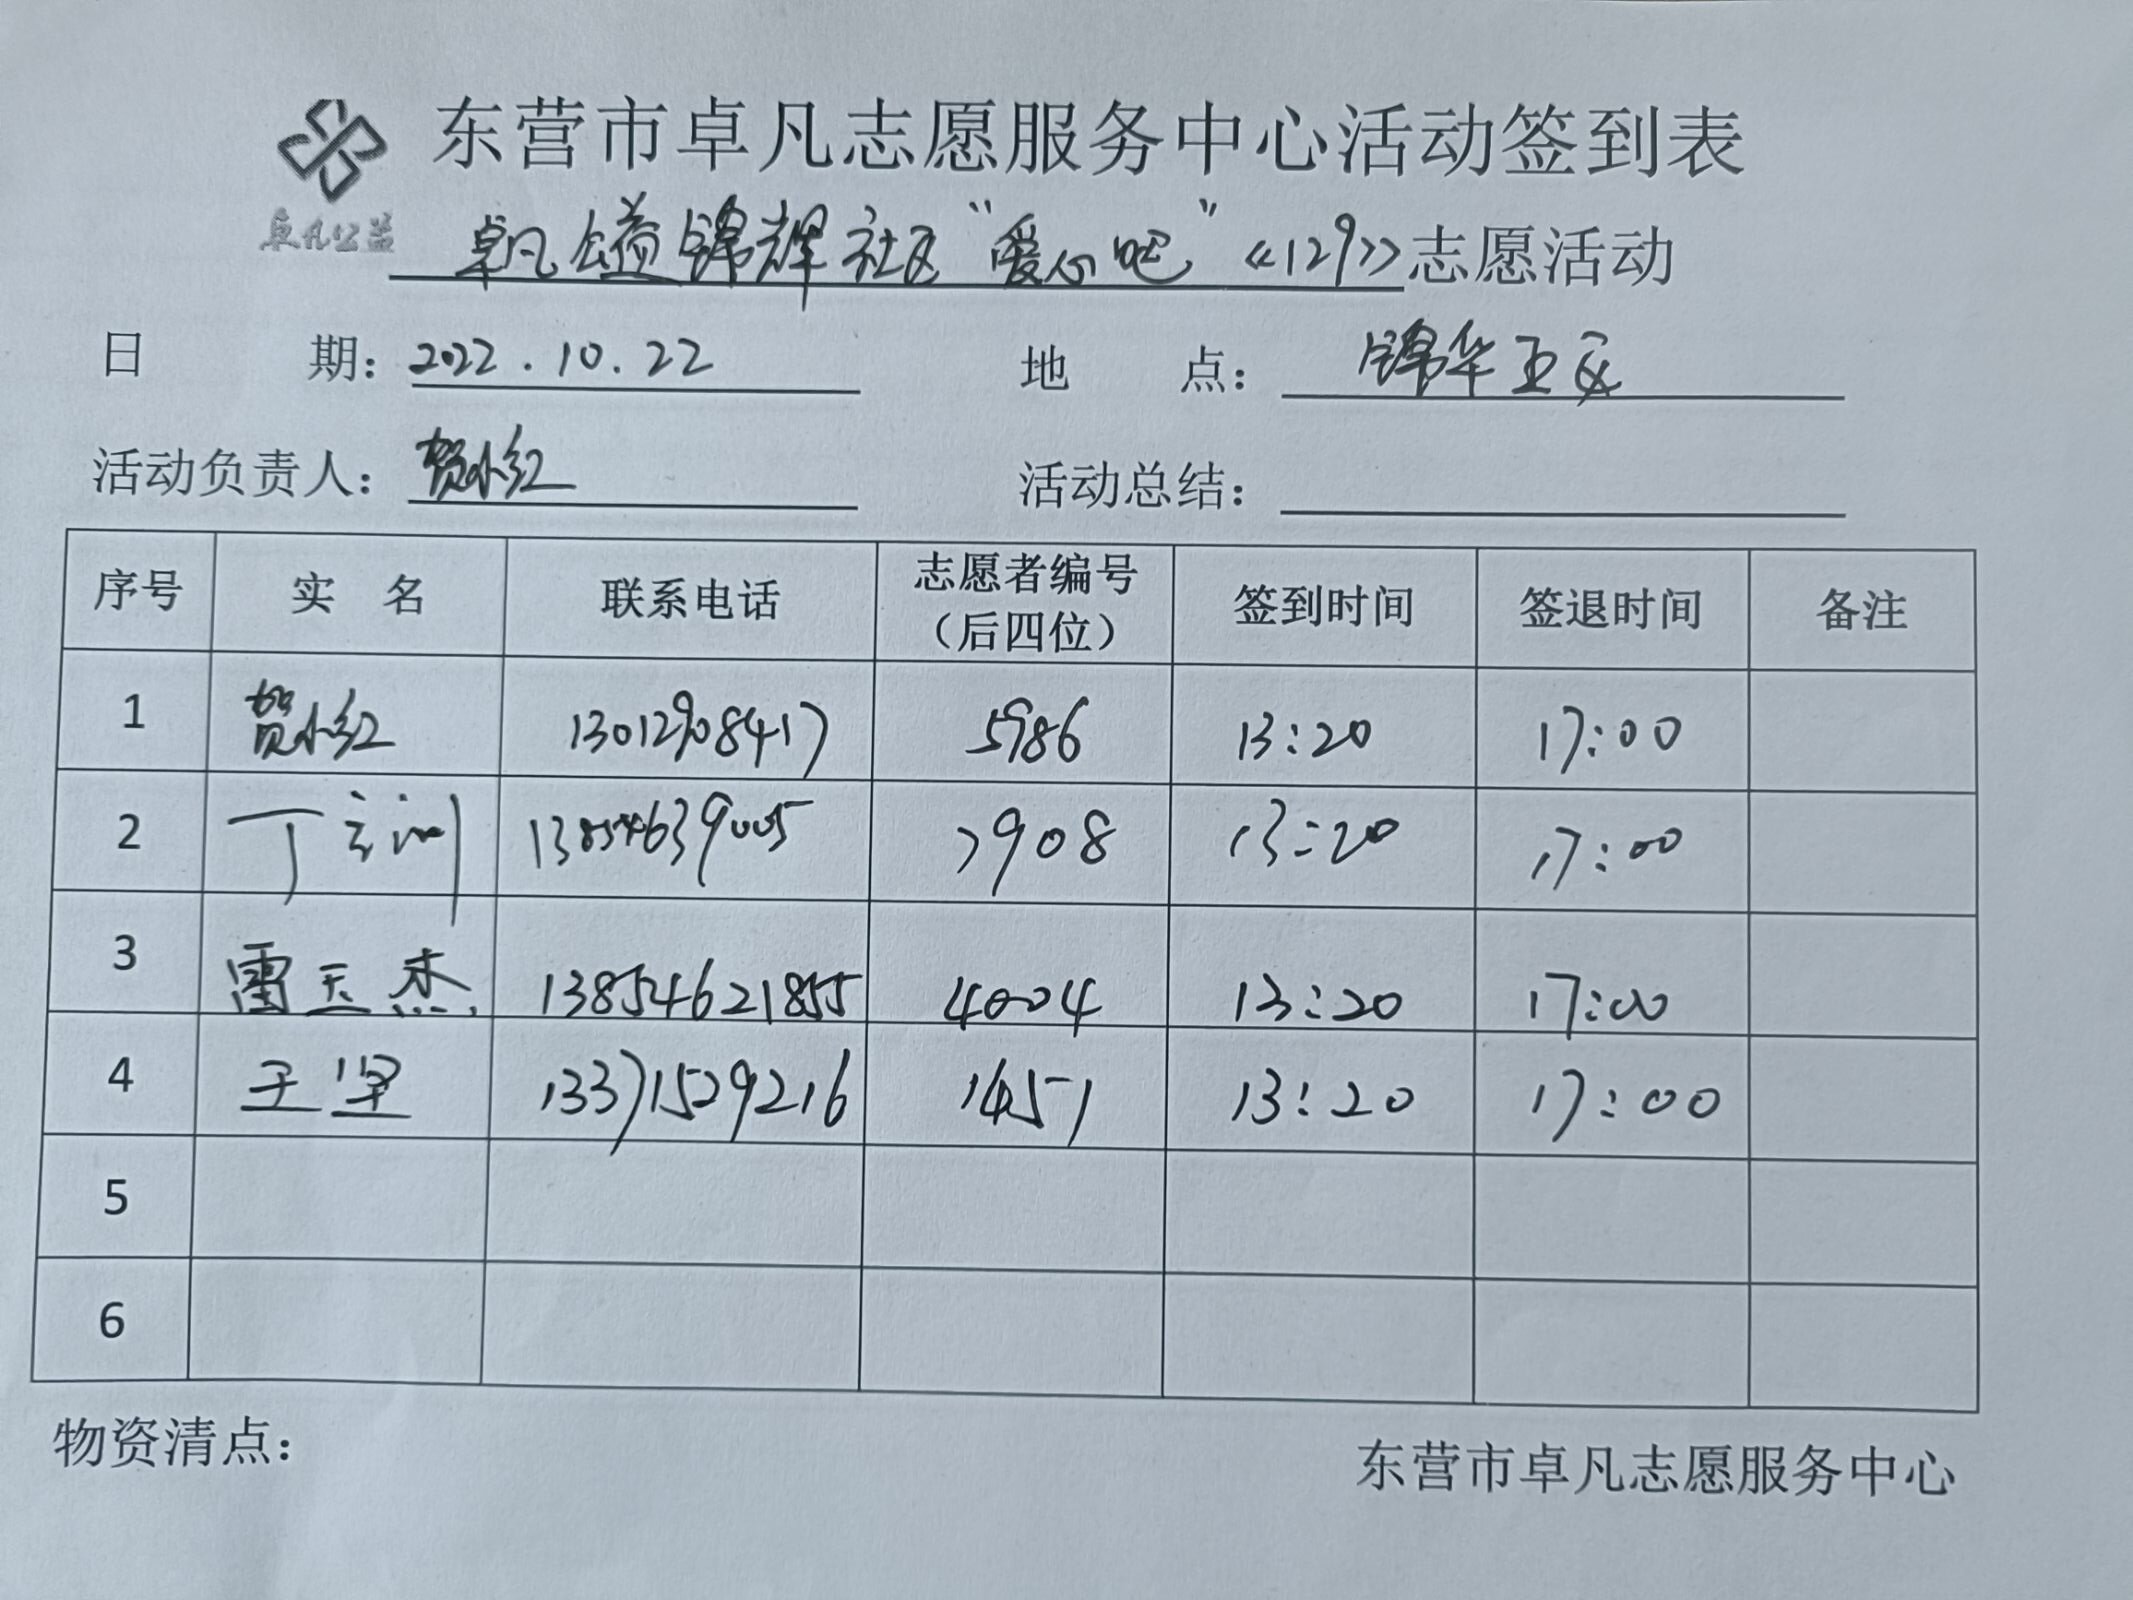 东营市卓凡志愿服务中心活动签到表
卓凡公益
卓凡公益锦辉社区“爱心吧”《129》志愿活动
日期：2022.10.22 地点：锦华五区
活动负责人：贺小红 活动总结：
序号 实名 联系电话 志愿者编号（后四位） 签到时间 签退时间 备注
1 贺小红 13012908417 5986 13:20 17:00
2 丁 13854639005 7908 13:20 17:00
3 雷玉杰 13854621855 4004 13:20 17:00
4 王坚 13371529216 1451 13:20 17:00
5
6
物资清点：
东营市卓凡志愿服务中心